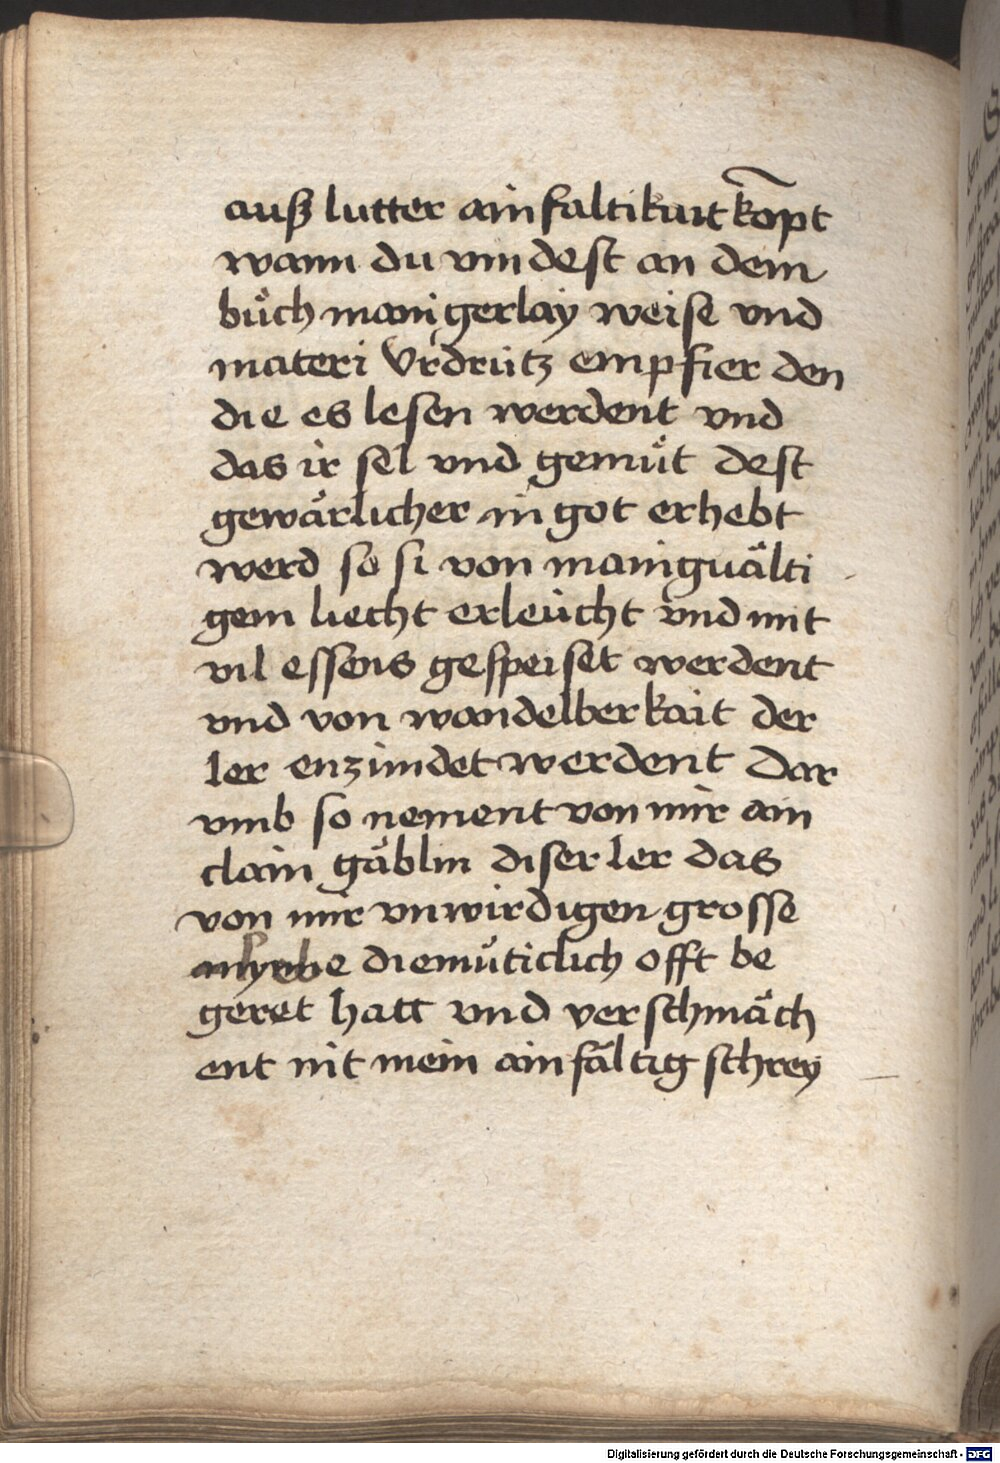 auß lutter ainfaltikait kōpt
wann du vindest an dem
bůch manigerlay weise vnd
materi Vrdrütz empfier den
die es lesen werdent vnd
das ir sel vnd gemůt dest
gewärlicher in got erhebt
werd so si von maniguälti
gem liecht erleücht vnd mit
vil essens gespeiset werdent
vnd von wandelberkait der
ler enzündet werdent Dar
vmb so nement von mir ain
clain gäblin diser ler das
von mir vnwirdigen grosse
diemüticlich offt be
geret hatt vnd verschmäch
ent nit mein ainfältig schrey
Digitalisierung gefördert durch die Deutsche Forschungsgemeinschaft - DFG